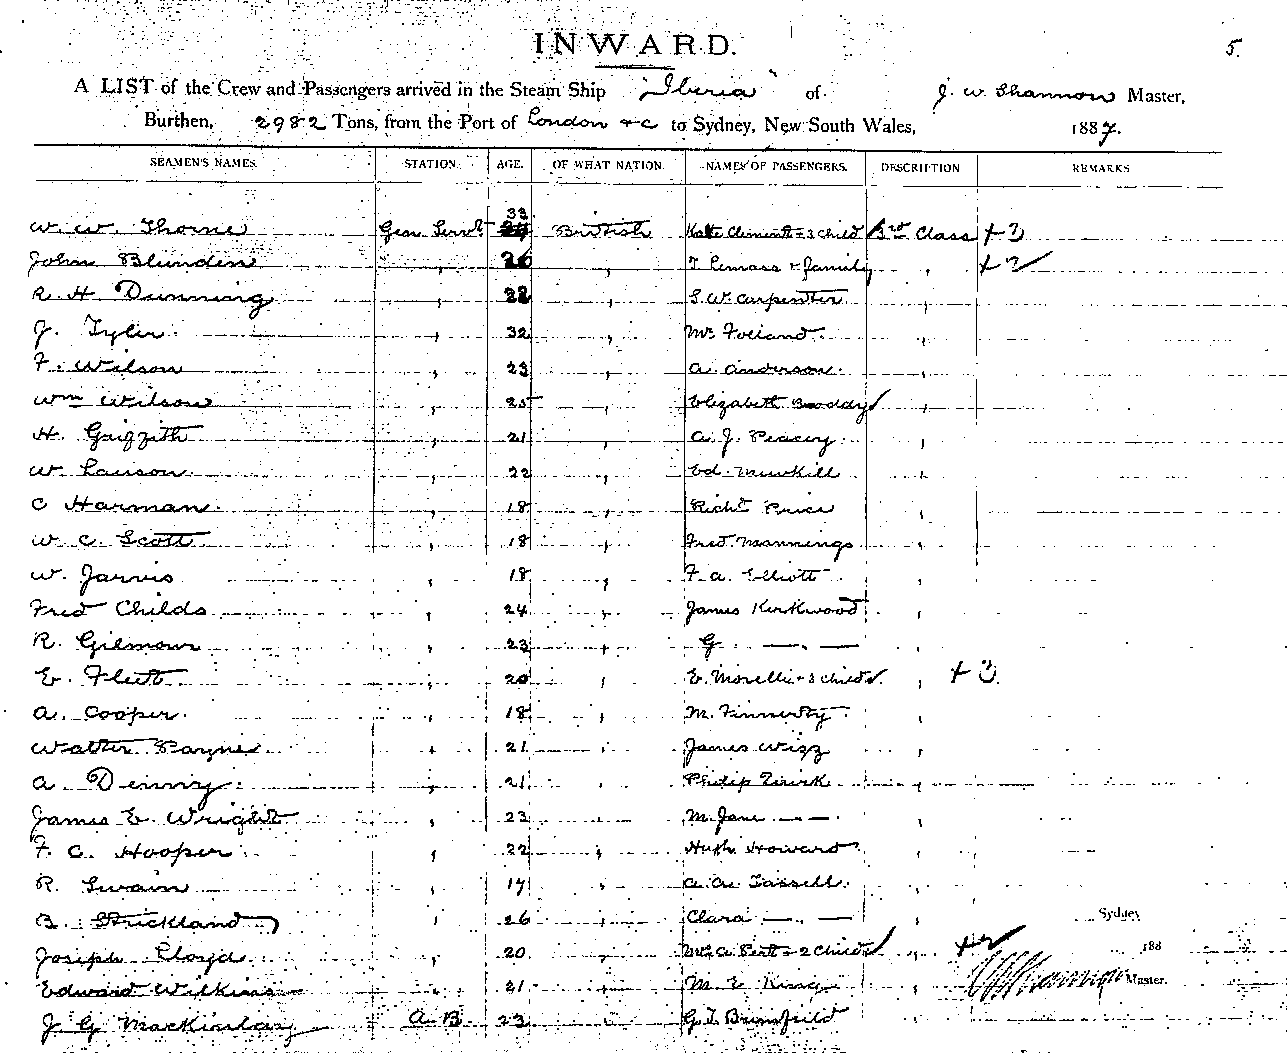 INWARD.
5.
A LIST of the Crew and Passengers arrived in the Steam Ship "Iberia" of J. W. Shannon Master,
Burthen, 2982 Tons, from the Port of London &c to Sydney, New South Wales, 1887.
SEAMEN'S NAMES. STATION. AGE. OF WHAT NATION. NAMES OF PASSENGERS. DESCRIPTION REMARKS
33
W. W. Thorne Genl Servt British Kate Clements + 3 child 3rd Class +3
John Blunden " 26 " T. Lemass & family " +2
R. H. Dunning " 22 " S. W. Carpenter "
J. Tyler " 32 " Mr Folland "
F. Wilson " 23 " A. Anderson "
Wm Wilson " 25 " Elizabeth Boddy "
H. Griffith " 21 " A. J. Peacey "
W. Lawson " 22 " Ed.
C Harman " 18 " Richd Price "
W. C. Scott " 18 " Fred Mannings "
W. Jarvis " 18 " F. A. Elliott "
Fred Childs " 24 " James Kirkwood "
R. Gilmour " 23 " G — " — "
E. Flett " 20 " E. Morelli + 3 childn " +3
A. Cooper " 18 " M. Finnerty "
Walter Payne " 21 " James Wigg "
A. Denny " 21 " Philip "
James E. Wright " 23 " M. Jane — —
F. C. Hooper " 22 " Hugh Howard "
R. Swain " 17 " A. A. Tassell "
B. Strickland " 26 " Clara — " — " Sydney
Joseph Lloyd " 20 " Mrs A. Pert + 2 childn " +2 188
Edward Wilkins " 21 " M. E. King " J W Shannon Master.
J G MacKinlay A.B. 23 " G T. Brimfield "